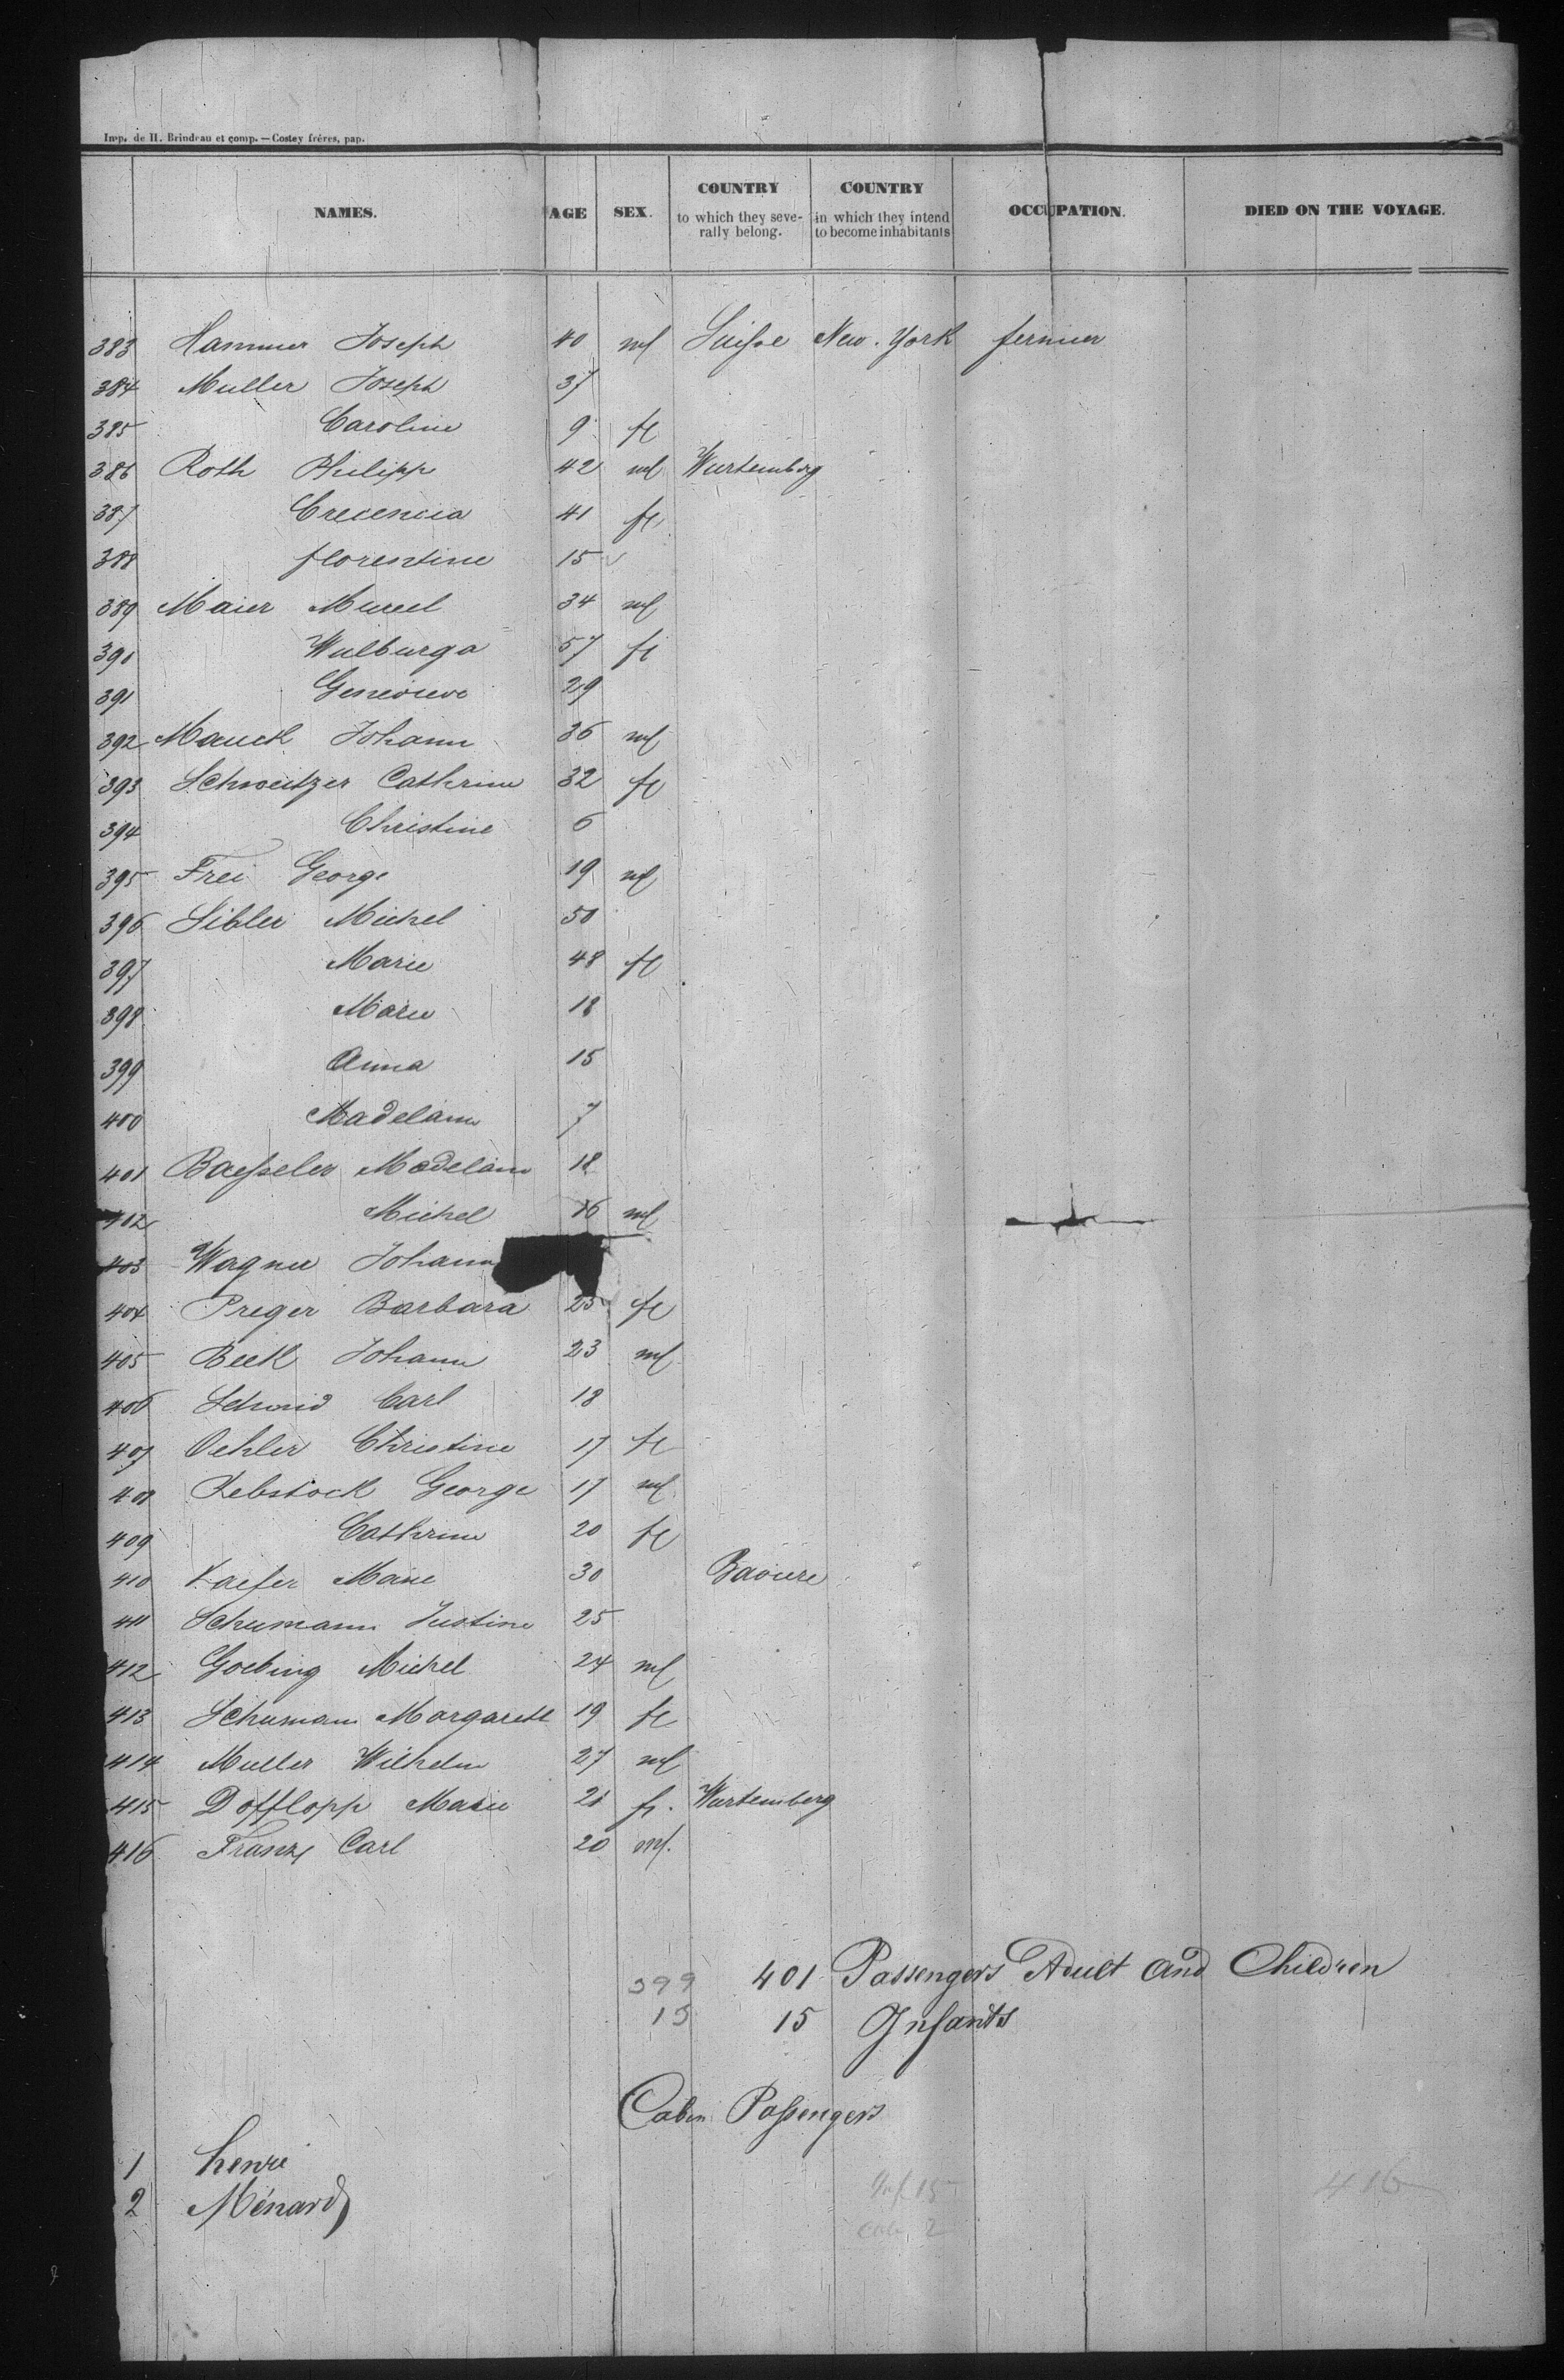 Imp. de H. Brindeau et comp. — Costey fréres, pap.
NAMES. AGE SEX. COUNTRY to which they seve- rally belong. COUNTRY in which they intend to become inhabitants OCCUPATION. DIED ON THE VOYAGE.
383 Hammer Joseph 40 ml Suisse New-York fermier
384 Muller Joseph 37
385 Caroline 9 fl
386 Roth Philipp 42 ml Wurtemberg
387 Crecencia 41 fl
388 florentine 15
389 Maier 34 ml
390 Walburga 57 fl
391 Genevieve 29
392 Mauch Johann 36 ml
393 Schweitzer Cathrine 32 fl
394 Christine 6
395 Frei George 19 ml
396 Sibler Michel 50
397 Marie 48 fl
398 Marie 18
399 Anna 15
400 Madelaine 7
401 Baesseler Madelaine 18
402 Michel 16 ml
403 Wagner Johann
404 Preger Barbara 25 fl
405 Beck Johann 23 ml
406 Schmid Carl 18
407 Oehler Christine 17 fl
408 Rebstock George 17 ml
409 Cathrine 20 fl
410 Kaefer Marie 30 Baviere
411 Schumann Justine 25
412 Goebing Michel 24 ml
413 Schumann Margareth 19 fl
414 Muller Wilhelm 27 ml
415 Dofflopp Marie 21 fl. Wurtemberg
416 Franz Carl 20 ml.
399 401 Passengers Adult and Children
15 15 Infants
Cabin Passengers
1 henri
2 Ménard
Inf. 15 416
Cab. 2